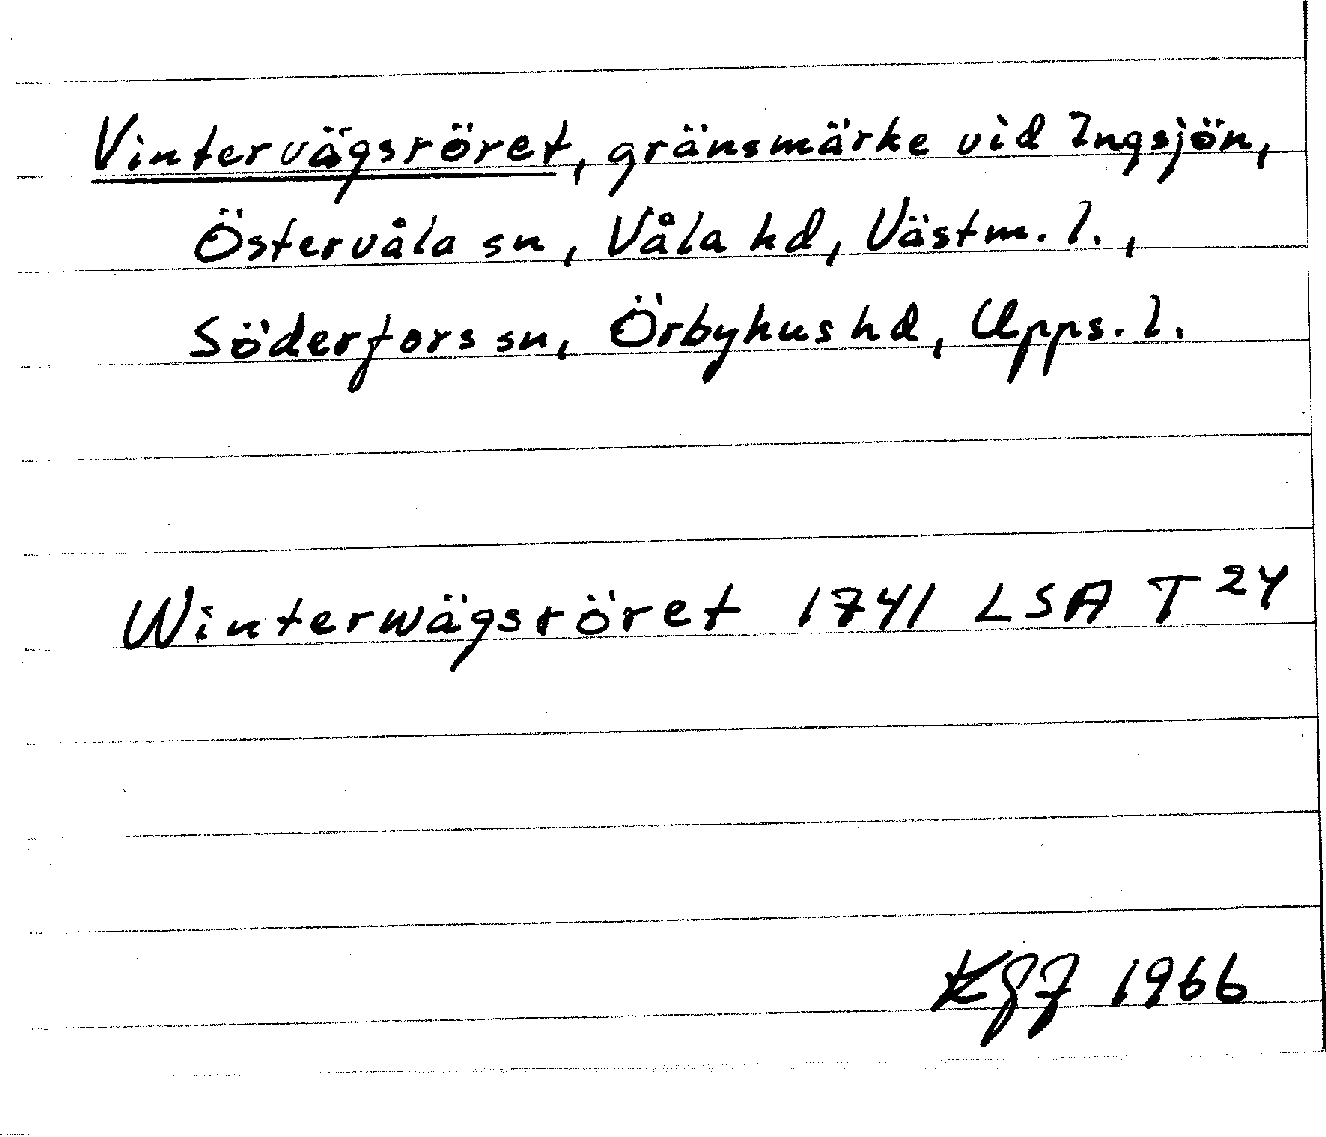 Vintervägsröret, gränsmärke vid Ingsjön,
Östervåla sn, Våla hd, Västm. l.,
Söderfors sn, Örbyhus hd, Upps. l.
Winterwägsröret 1741 LSA T 24
1966